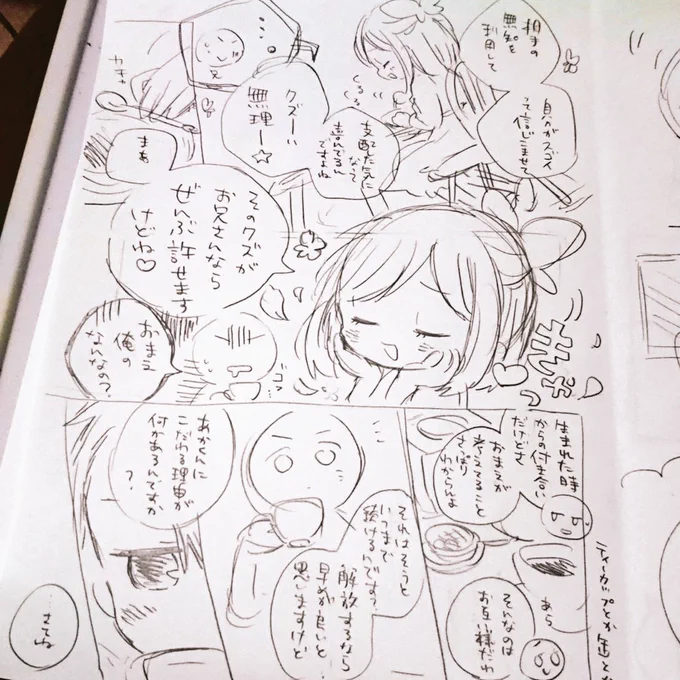 相手の
無知を
利用して
自分がスゴイ
って信じこませて
支配した気に
なって
喜んでるん
ですよね
クズーい
無理ー☆
カチャ
まあ
そのクズが
お兄さんなら
ぜんぶ許せます
けどね♡
おまえ
俺の
なんなの?
生まれた時
からの付き合い
だけどさ
おまえが
考えてること
さっぱり
わからんよ
あら
そんなのは
お互い様だわ
それはそうと
いつまで
続けるんですの?
解放するなら
早めが良いと
思いますけど
あかくんに
こだわる理由が
何かあるんですか
?
さてね
ティーカップとか